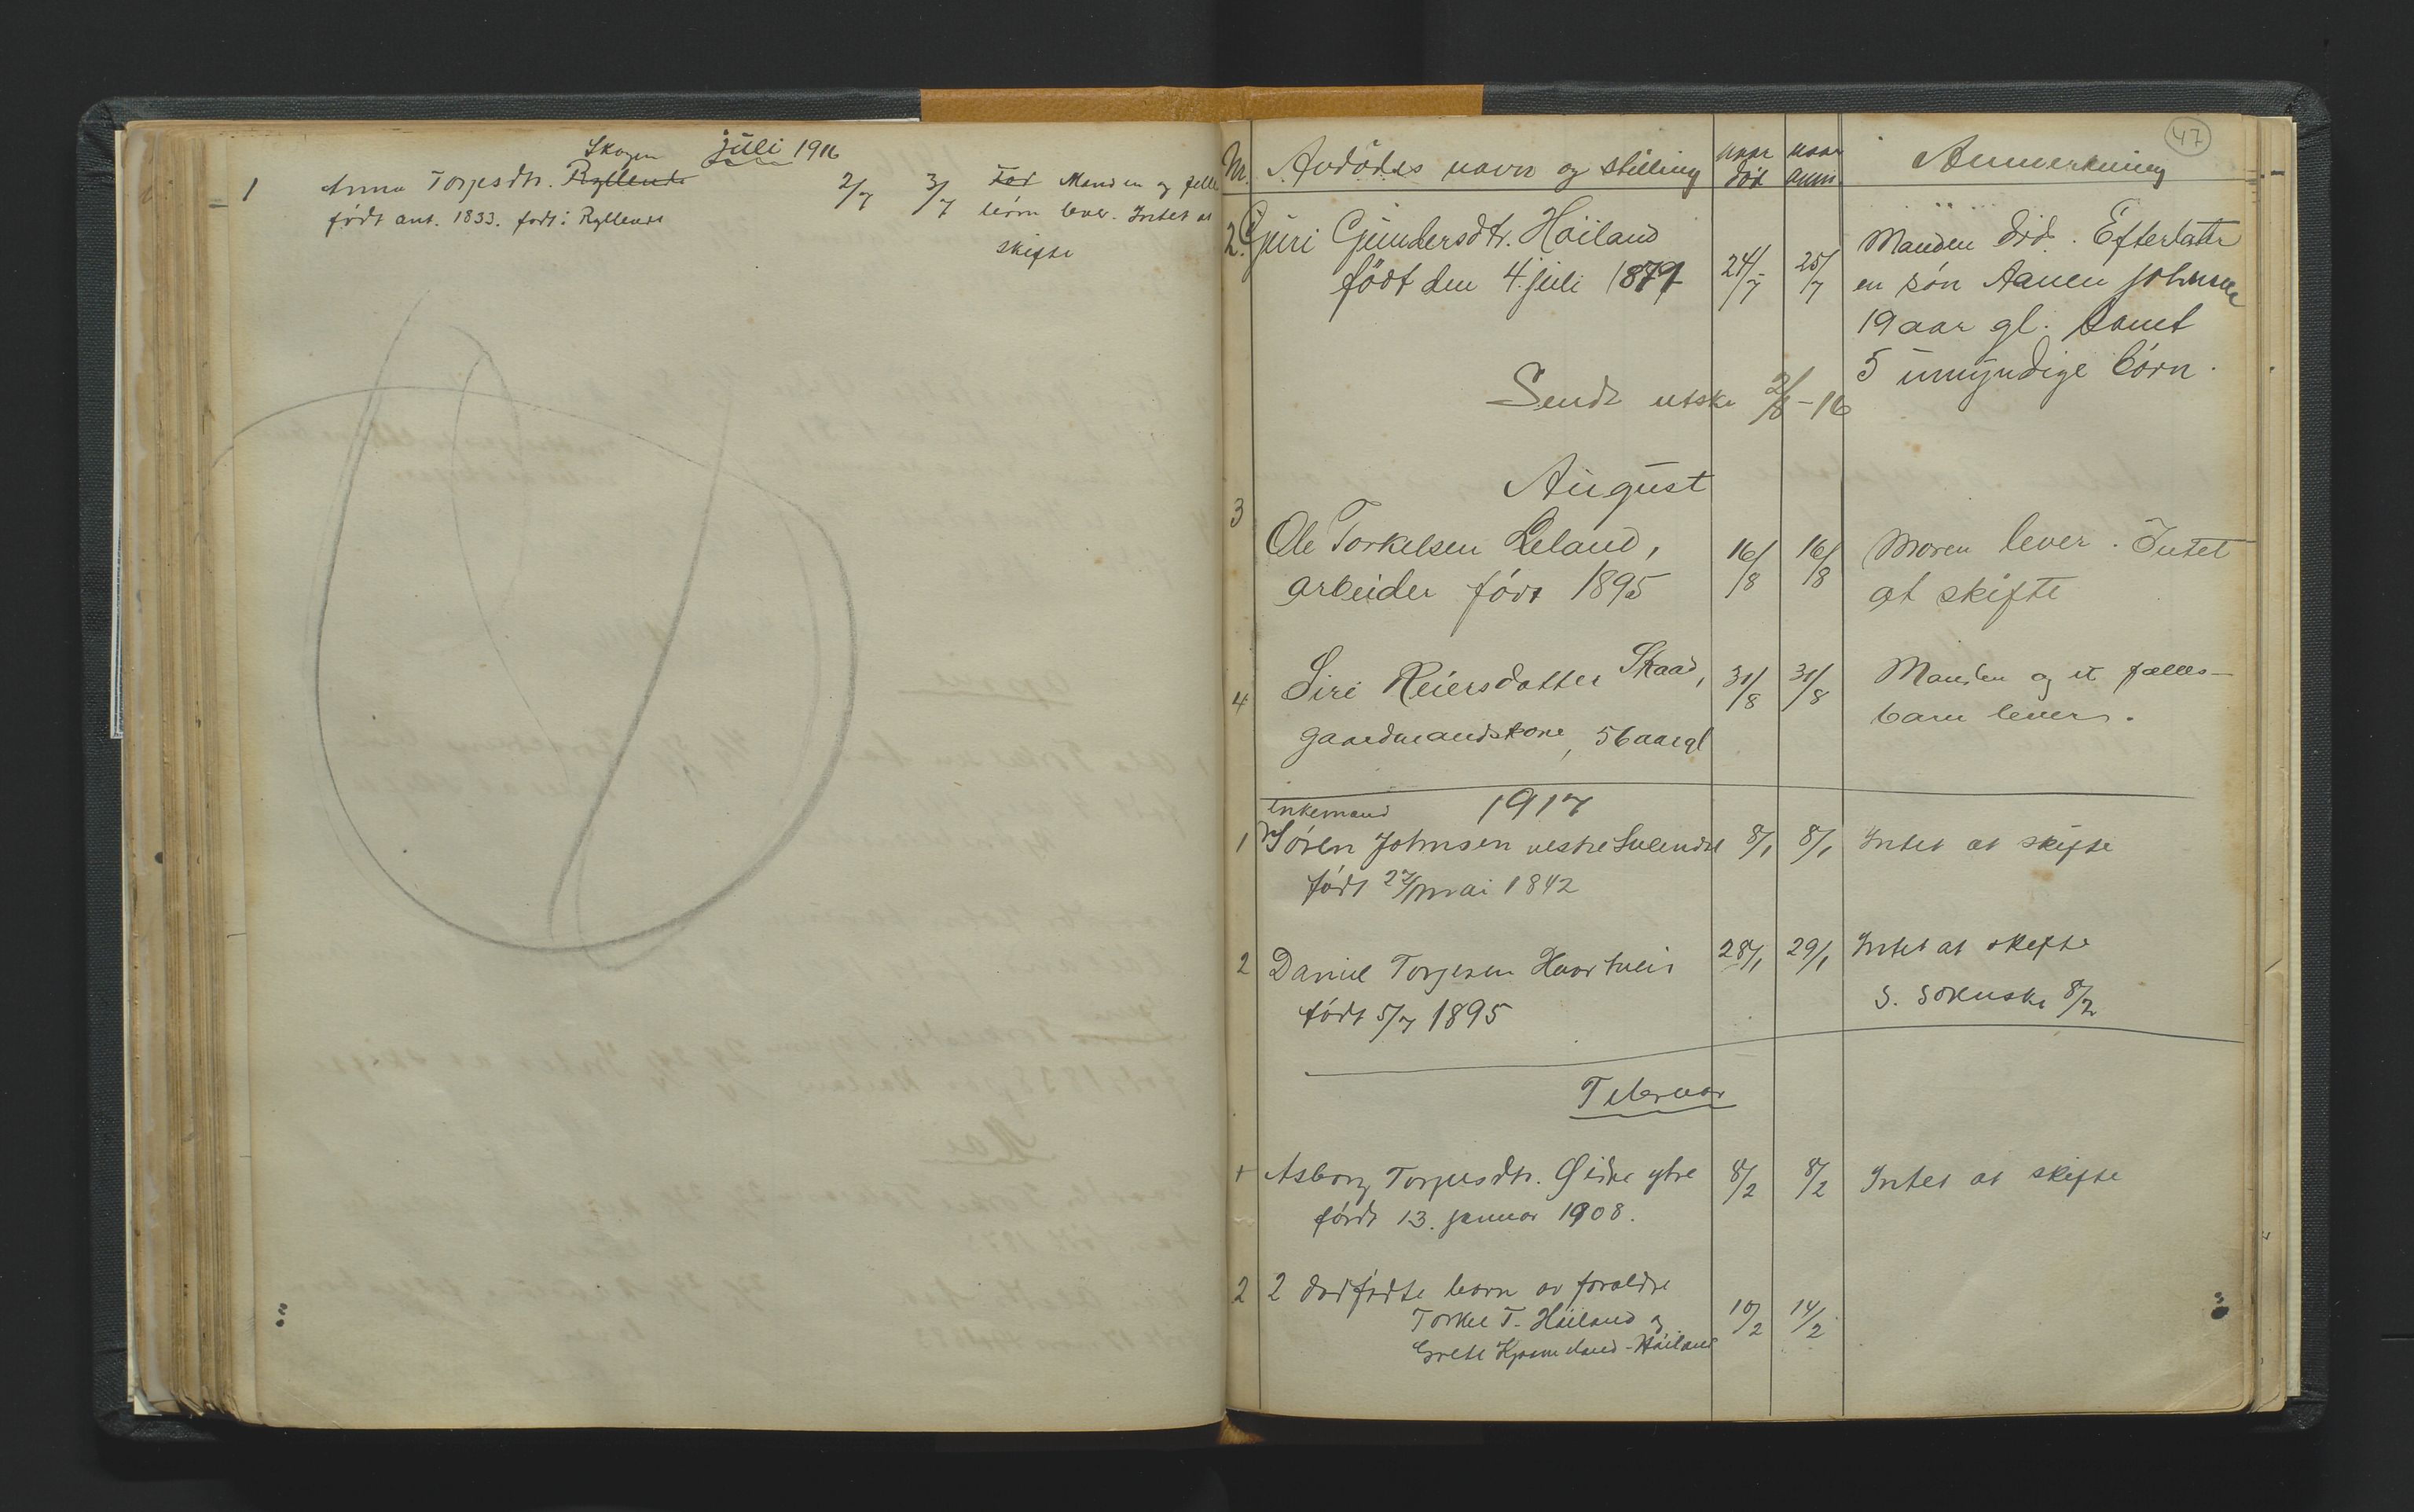 Juli 1916
Skogen
1 Anna Torjesdtr. Ryllende 2/7 3/7 Fød Manden og felles
født ant. 1833. født i Ryllende børn lever. Intet at
skifte
47
Nr. Avdödes navn og stilling naar död naar anm. Anmerkning
2. Guri Gundersdtr. Höiland 24/7 25/7 Manden död. Efterlater
födt den 4. juli 1871 en sön Aanen Johnsen
19 aar gl. samt
5 umyndige börn.
Sendt utskr 2/8-16
August
3
Ole Torkelsen Leland, 16/8 16/8 Moren lever. Intet
arbeider födt 1895 at skifte
4 Siri Reiersdatter Skaad, 31/8 31/8 Manden og et fælles-
gaardmandskone, 56 aar gl barn lever.
1917
Enkemand
1 Sören Johnsen vestre 8/1 8/1 Intet at skifte
født 27/mai 1842
2 Daniel Torjesen 28/1 29/1 Intet at skifte
født 5/7 1895 S. 8/2
Februar
1 Asborg Torjusdtr. Øidne ytre 8/2 8/2 Intet at skifte
født 13. januar 1908.
2 2 dødfødte barn av foraldre 10/2 14/2
Torkel T. Höiland og
Grete -Höiland